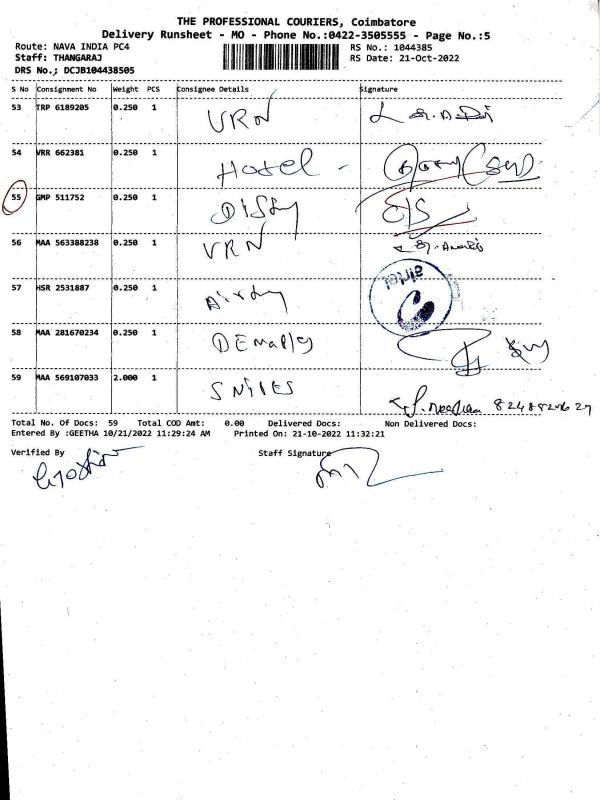 THE PROFESSIONAL COURIERS, Coimbatore
Delivery Runsheet - MO - Phone No.:0422-3505555 - Page No.:5
Route: NAVA INDIA PC4 RS No.: 1044385
Staff: THANGARAJ RS Date: 21-Oct-2022
DRS No.; DCJB104438505
S No Consignment No Weight PCS Consignee Details Signature
53 TRP 6189205 0.250 1 VRN
54 VRR 662381 0.250 1 Hotel -
55 GMP 511752 0.250 1
56 MAA 563388238 0.250 1 VRN
57 HSR 2531887 0.250 1 airtel
58 MAA 281670234 0.250 1
59 MAA 569107033 2.000 1
Total No. Of Docs: 59 Total COD Amt: 0.00 Delivered Docs: Non Delivered Docs:
Entered By :GEETHA 10/21/2022 11:29:24 AM Printed On: 21-10-2022 11:32:21
Verified By Staff Signature